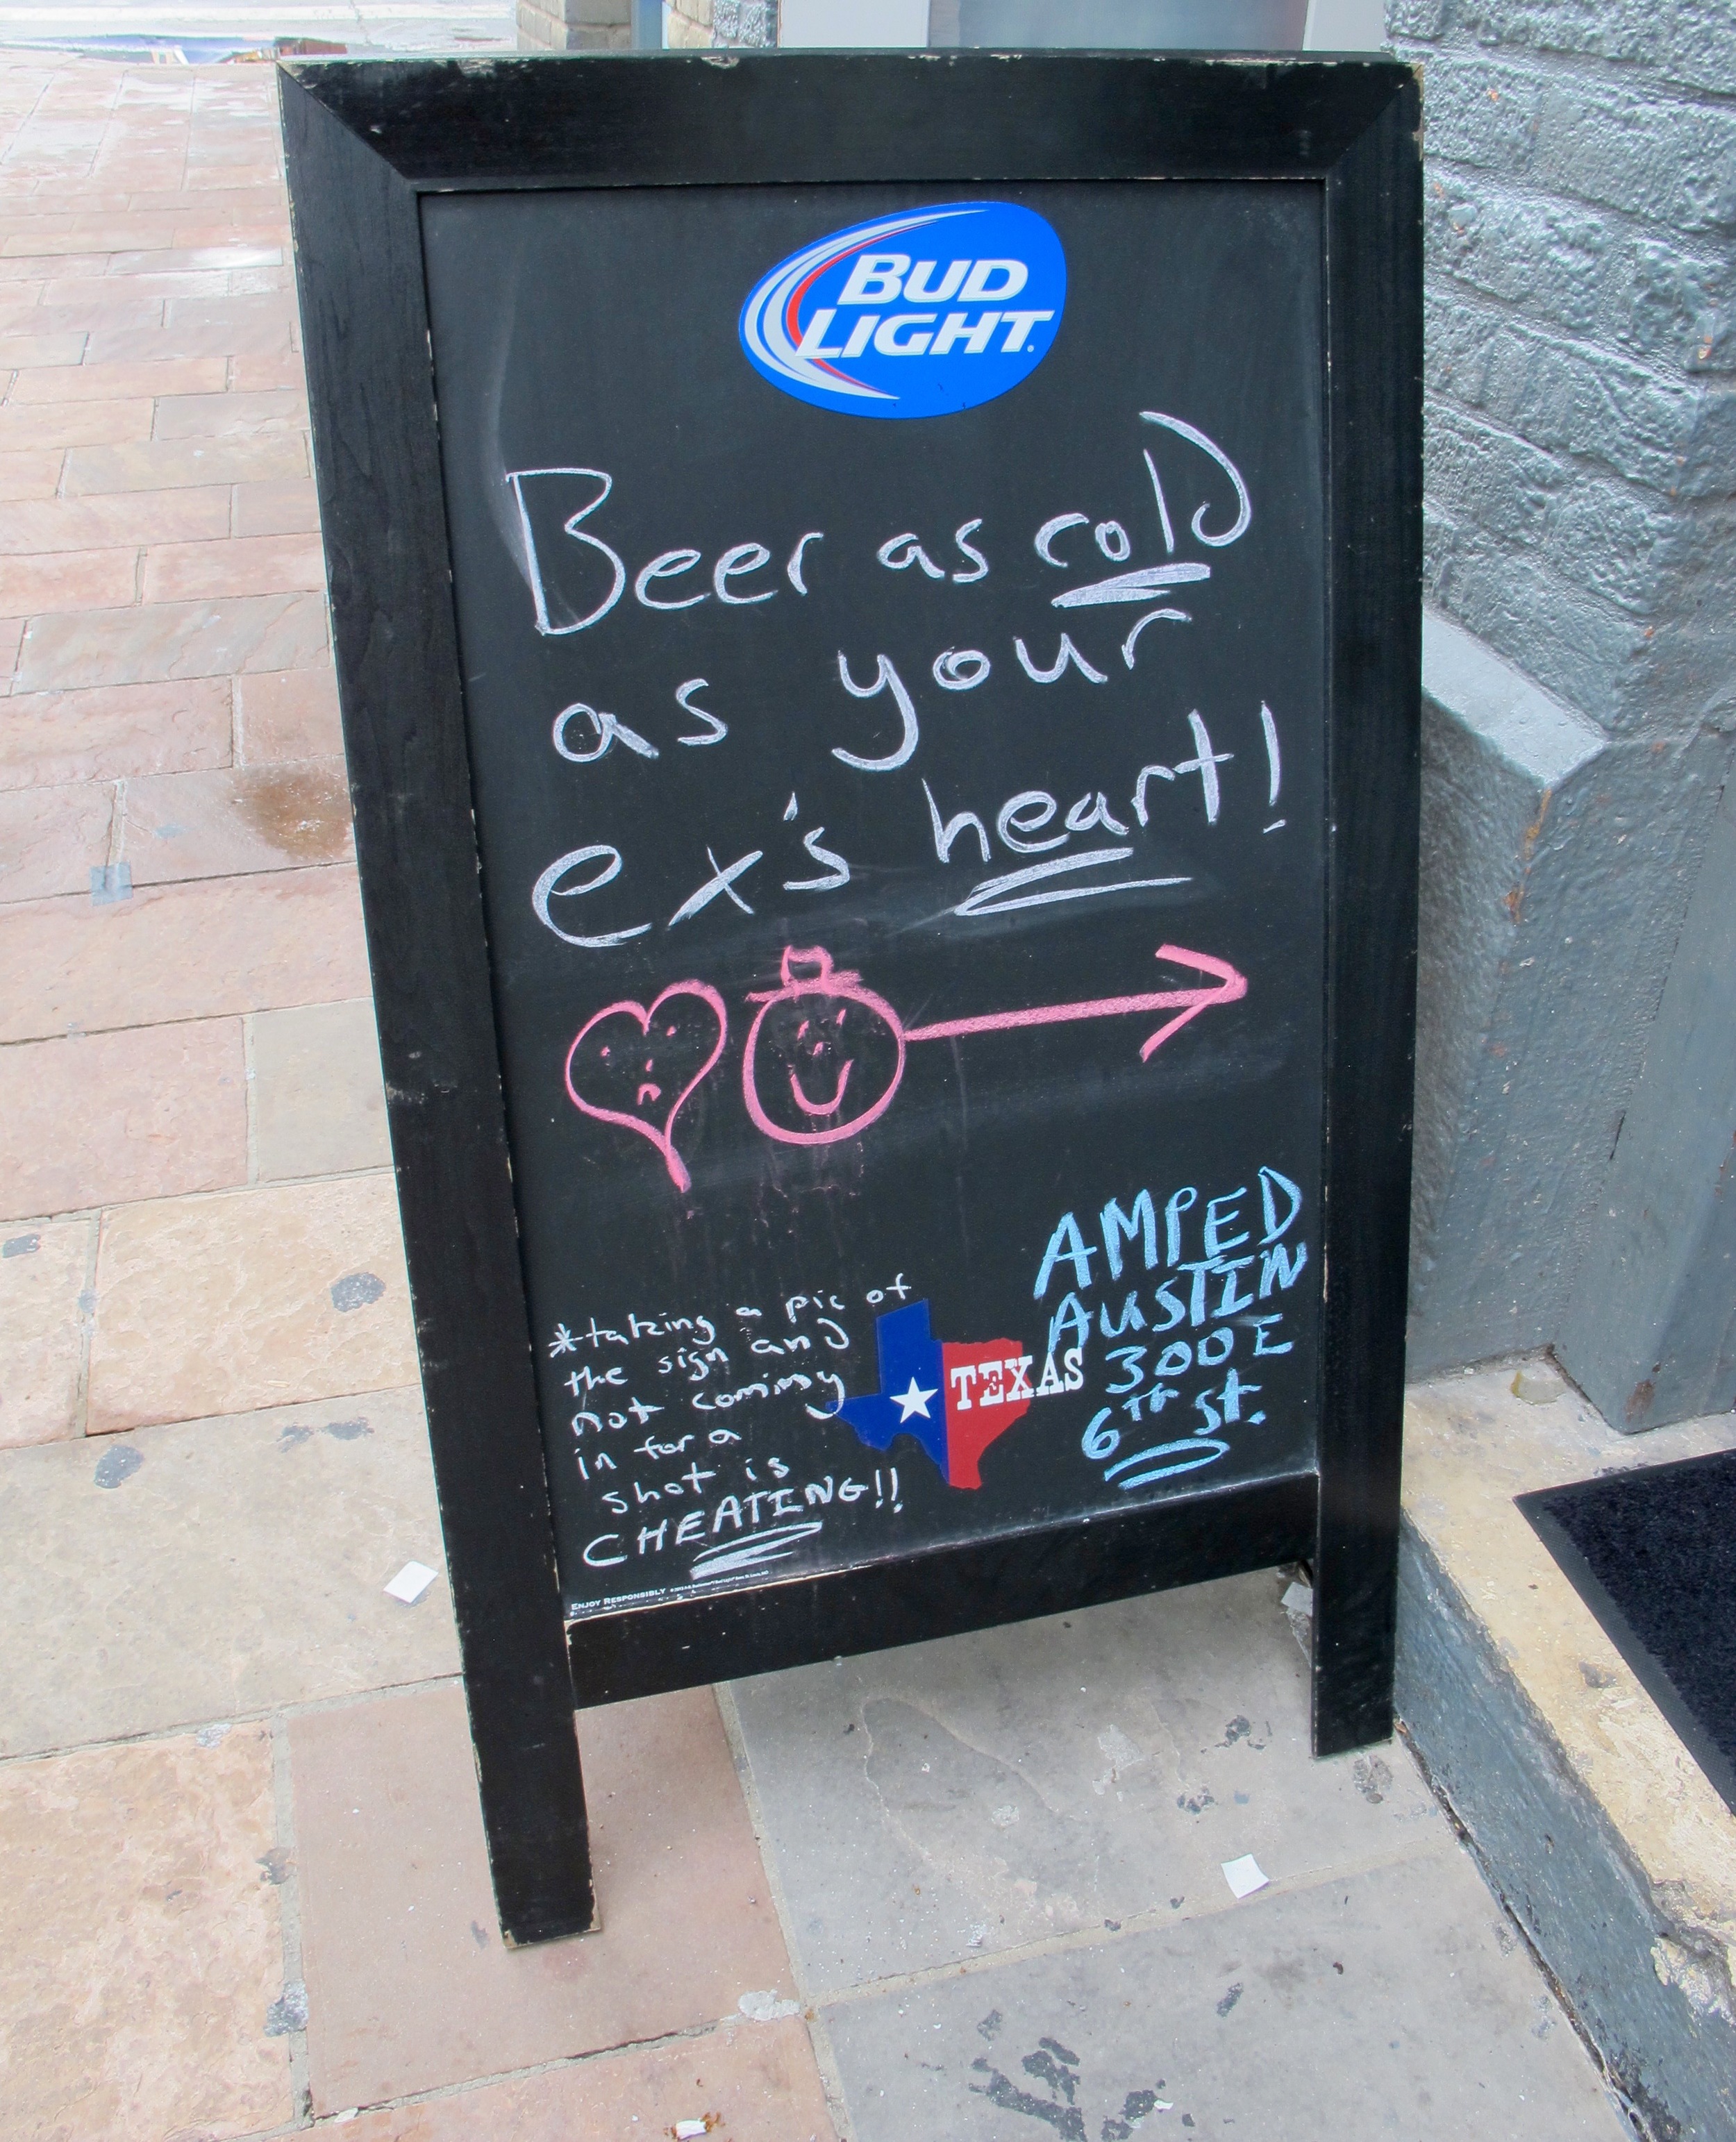 BUD
LIGHT
Beer as cold
as your
ex's heart!
*taking a pic of
the sign and
not coming
in for a
shot is
CHEATING!!
TEXAS
AMPED
AUSTIN
300 E
6TH St.
ENJOY RESPONSIBLY